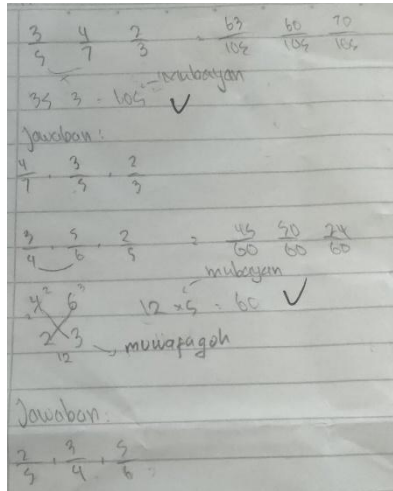 3/5 4/7 2/3 = 63/105 60/105 70/105
35 3 . 105 mubayan ✓
Jawaban:
4/7 . 3/5 . 2/3
3/4 . 5/6 . 2/5 = 45/60 50/60 24/60
mubayan
4² 6³ 12 × 5 = 60 ✓
2 3 muwafaqoh
12
Jawaban:
2/5 . 3/4 . 5/6